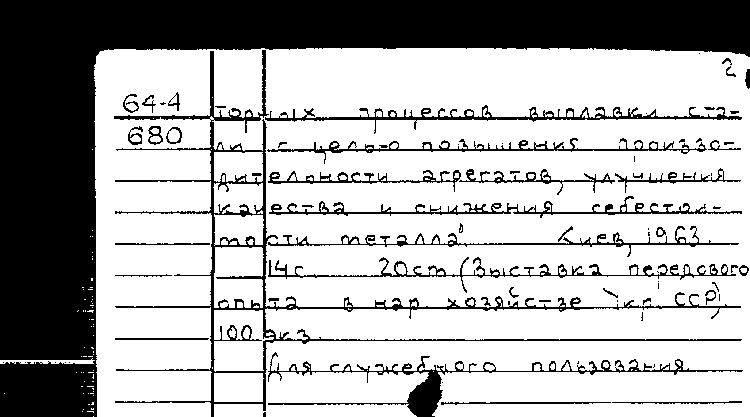 2
64-4 торных процессов выплавки ста-
680 ли с целью повышения произво-
дительности агрегатов, улучшения
качества и снижения себестои-
мости металла". Киев, 1963.
14с. 20см. (Выставка передового
опыта в нар. хозяйстве Укр. ССР).
100 экз.
Для служебного пользования